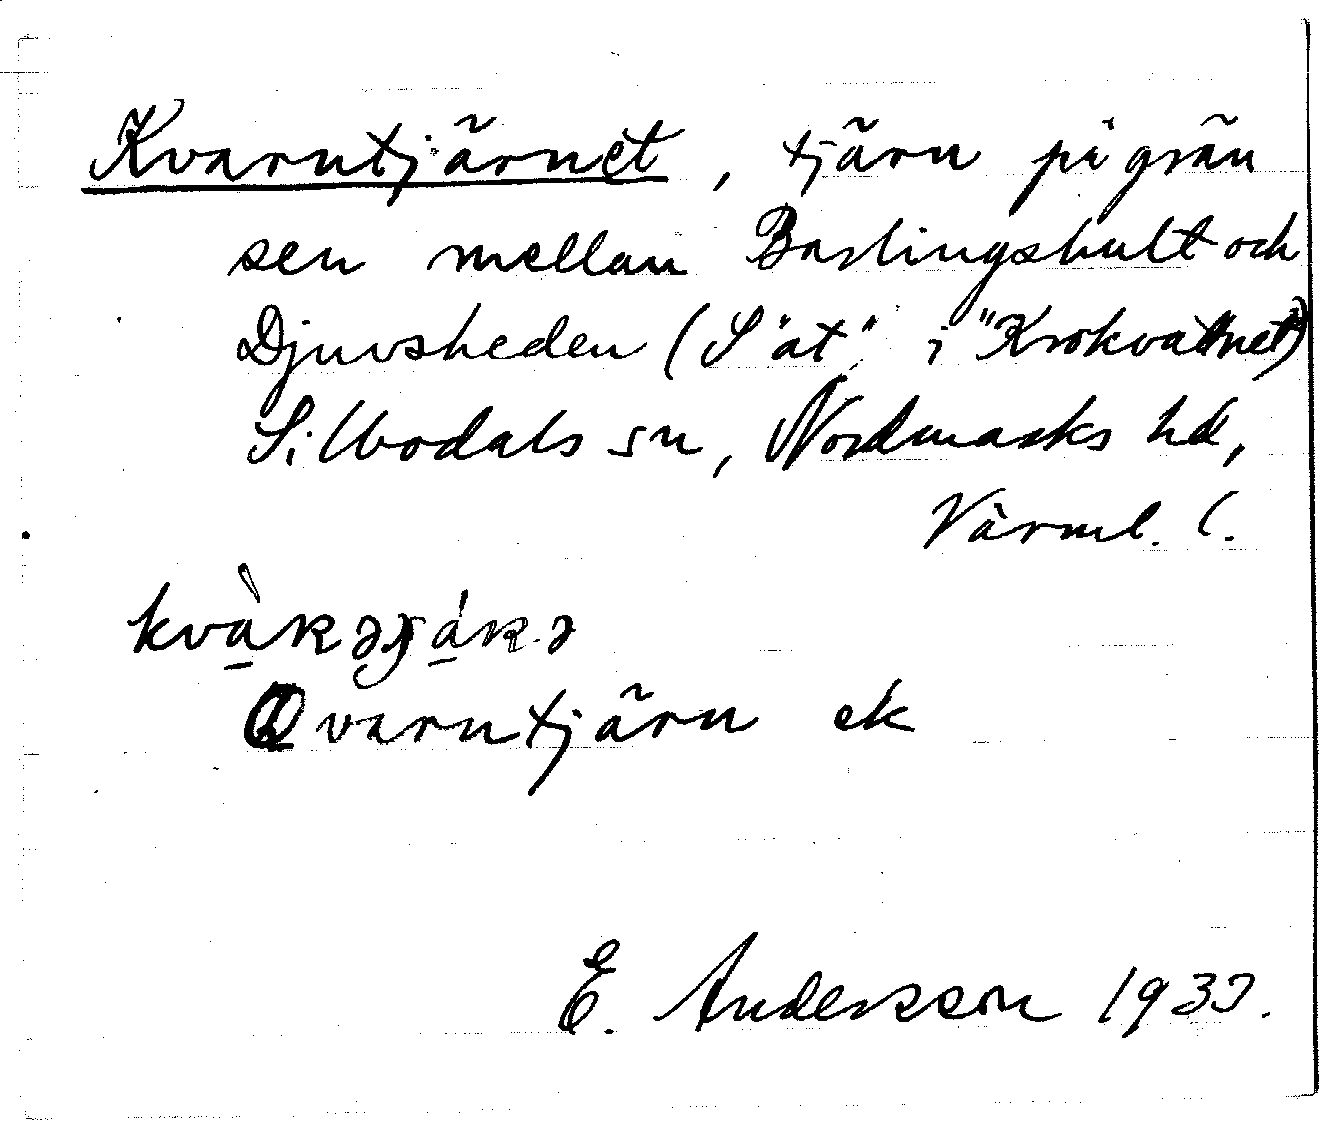 Kvarntjärnet, tjärn på grän
sen mellan Barlingshult och
Djuvsheden (S "at" i "Krokvattnet")
Silbodals sn, Nordmarks hd,
Värml. l.
Qvarntjärn ek
E. Andersson 1933.